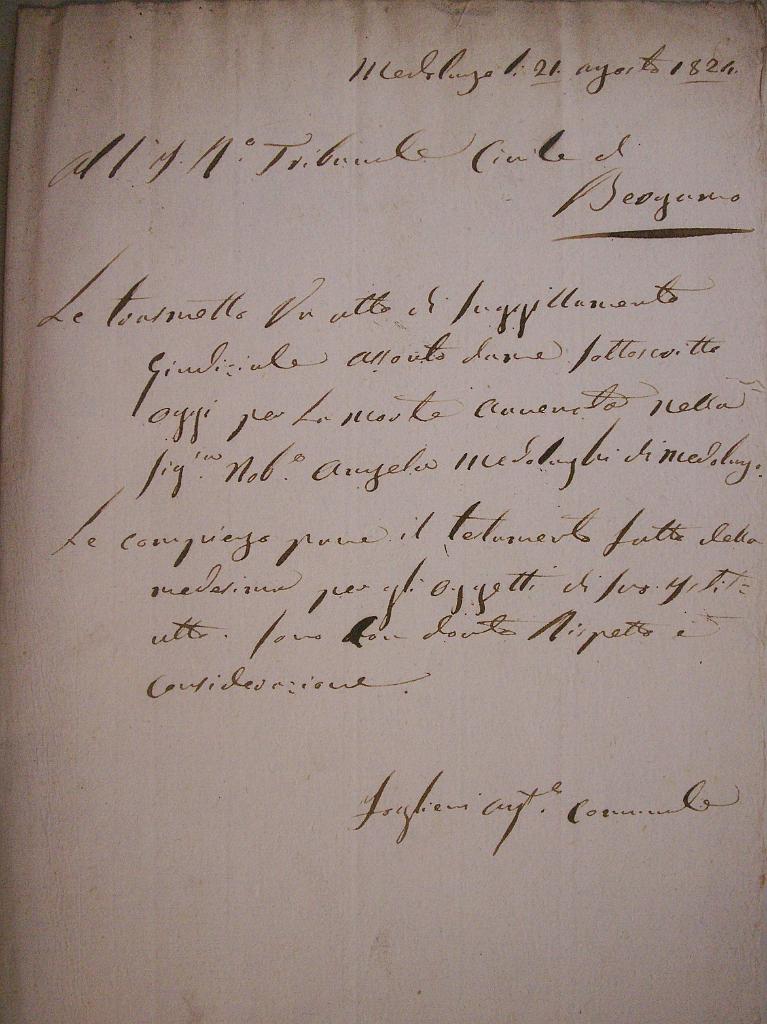 Medolago li 21 agosto 1824.
All' I. R.º Tribunale Civile di
Bergamo
Le trasmetto Un atto di suggillamento
Giudiziale assonto dame sottoscritto
oggi per La morte avvenuta nella
sig.ra Nob.e Angela Medolaghi di Medolago.
Le compiego pure il testamento fatto della
medesima per gli oggetti di suo Istit=
utto. sono Con dovuto Rispetto e
Considerazione.
Foglieni Ag.te Comunale